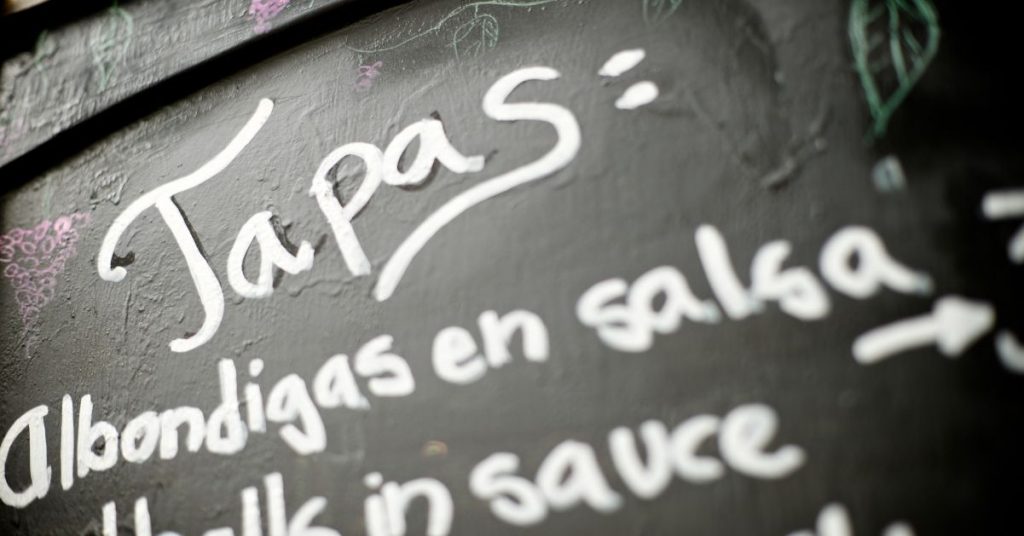 Tapas:
albondigas en salsa →
in sauce